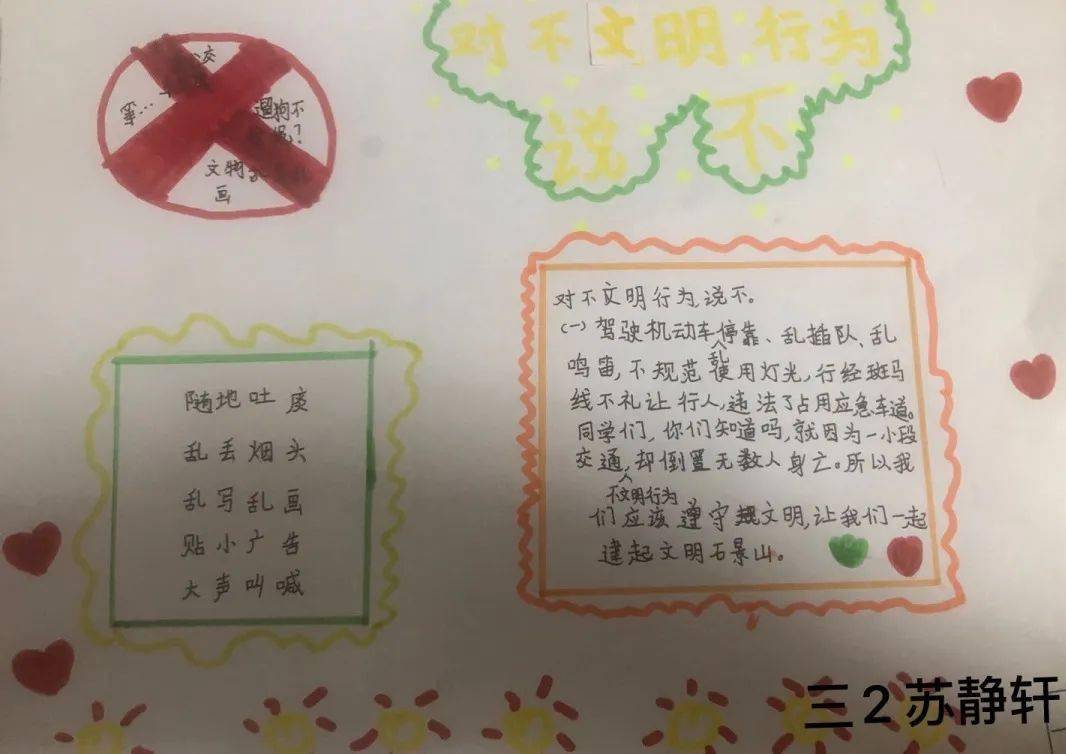 对不文明行为
说不
交
遛狗不
文物
画
随地吐痰
乱丢烟头
乱写乱画
贴小广告
大声叫喊
对不文明行为,说不。
(一)驾驶机动车乱停靠、乱插队、乱
鸣笛,不规范使用灯光,行经斑马
线不礼让行人,违法了占用应急车道。
同学们,你们知道吗,就因为一小段
交通不文明行为,却倒置无数人身亡。所以我
们应该遵守规文明,让我们一起
建起文明石景山。
三2苏静轩